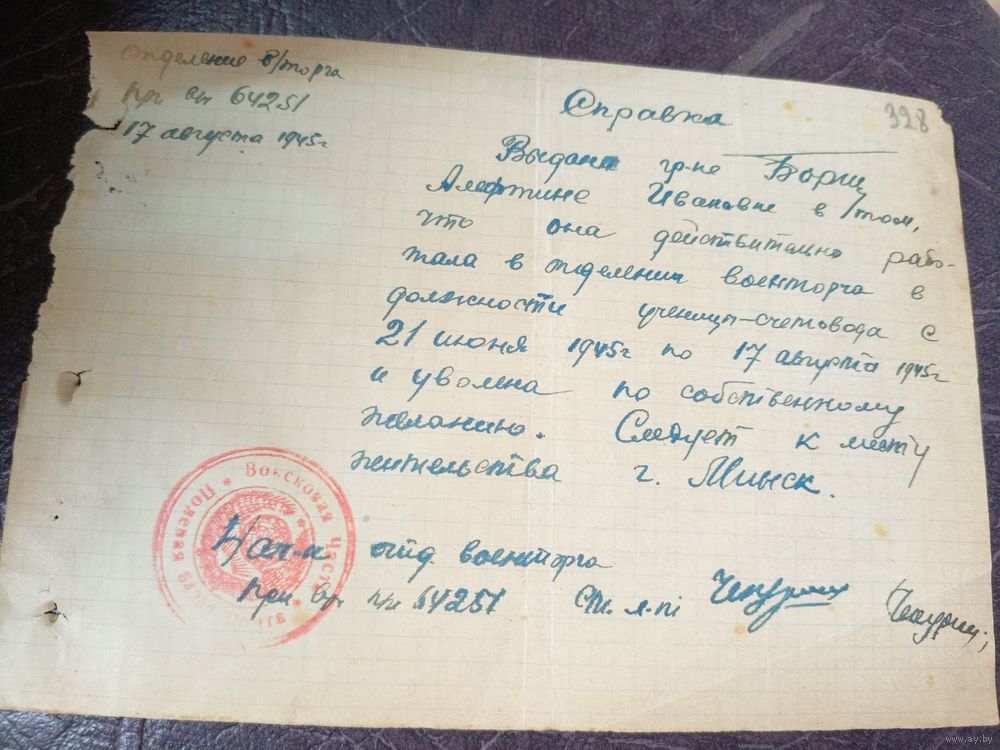 отделение в/торга
при в/ч 64251
17 августа 1945г
Справка
328
Выдана гр-ке Борщ
Алефтине Ивановне в том,
что она действительно рабо-
тала в отделении военторга в
должности ученицы-счетовода с
21 июня 1945г по 17 августа 1945г
и уволена по собственному
желанию. Следует к месту
жительства г. Минск.
Нач-к отд военторга
при в/ч п/п 64251 Ст. л-т
Войсковая Часть
Полевая
www.ay.by